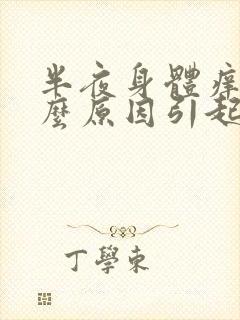 半夜身體痒
麼原因引起
丁學東